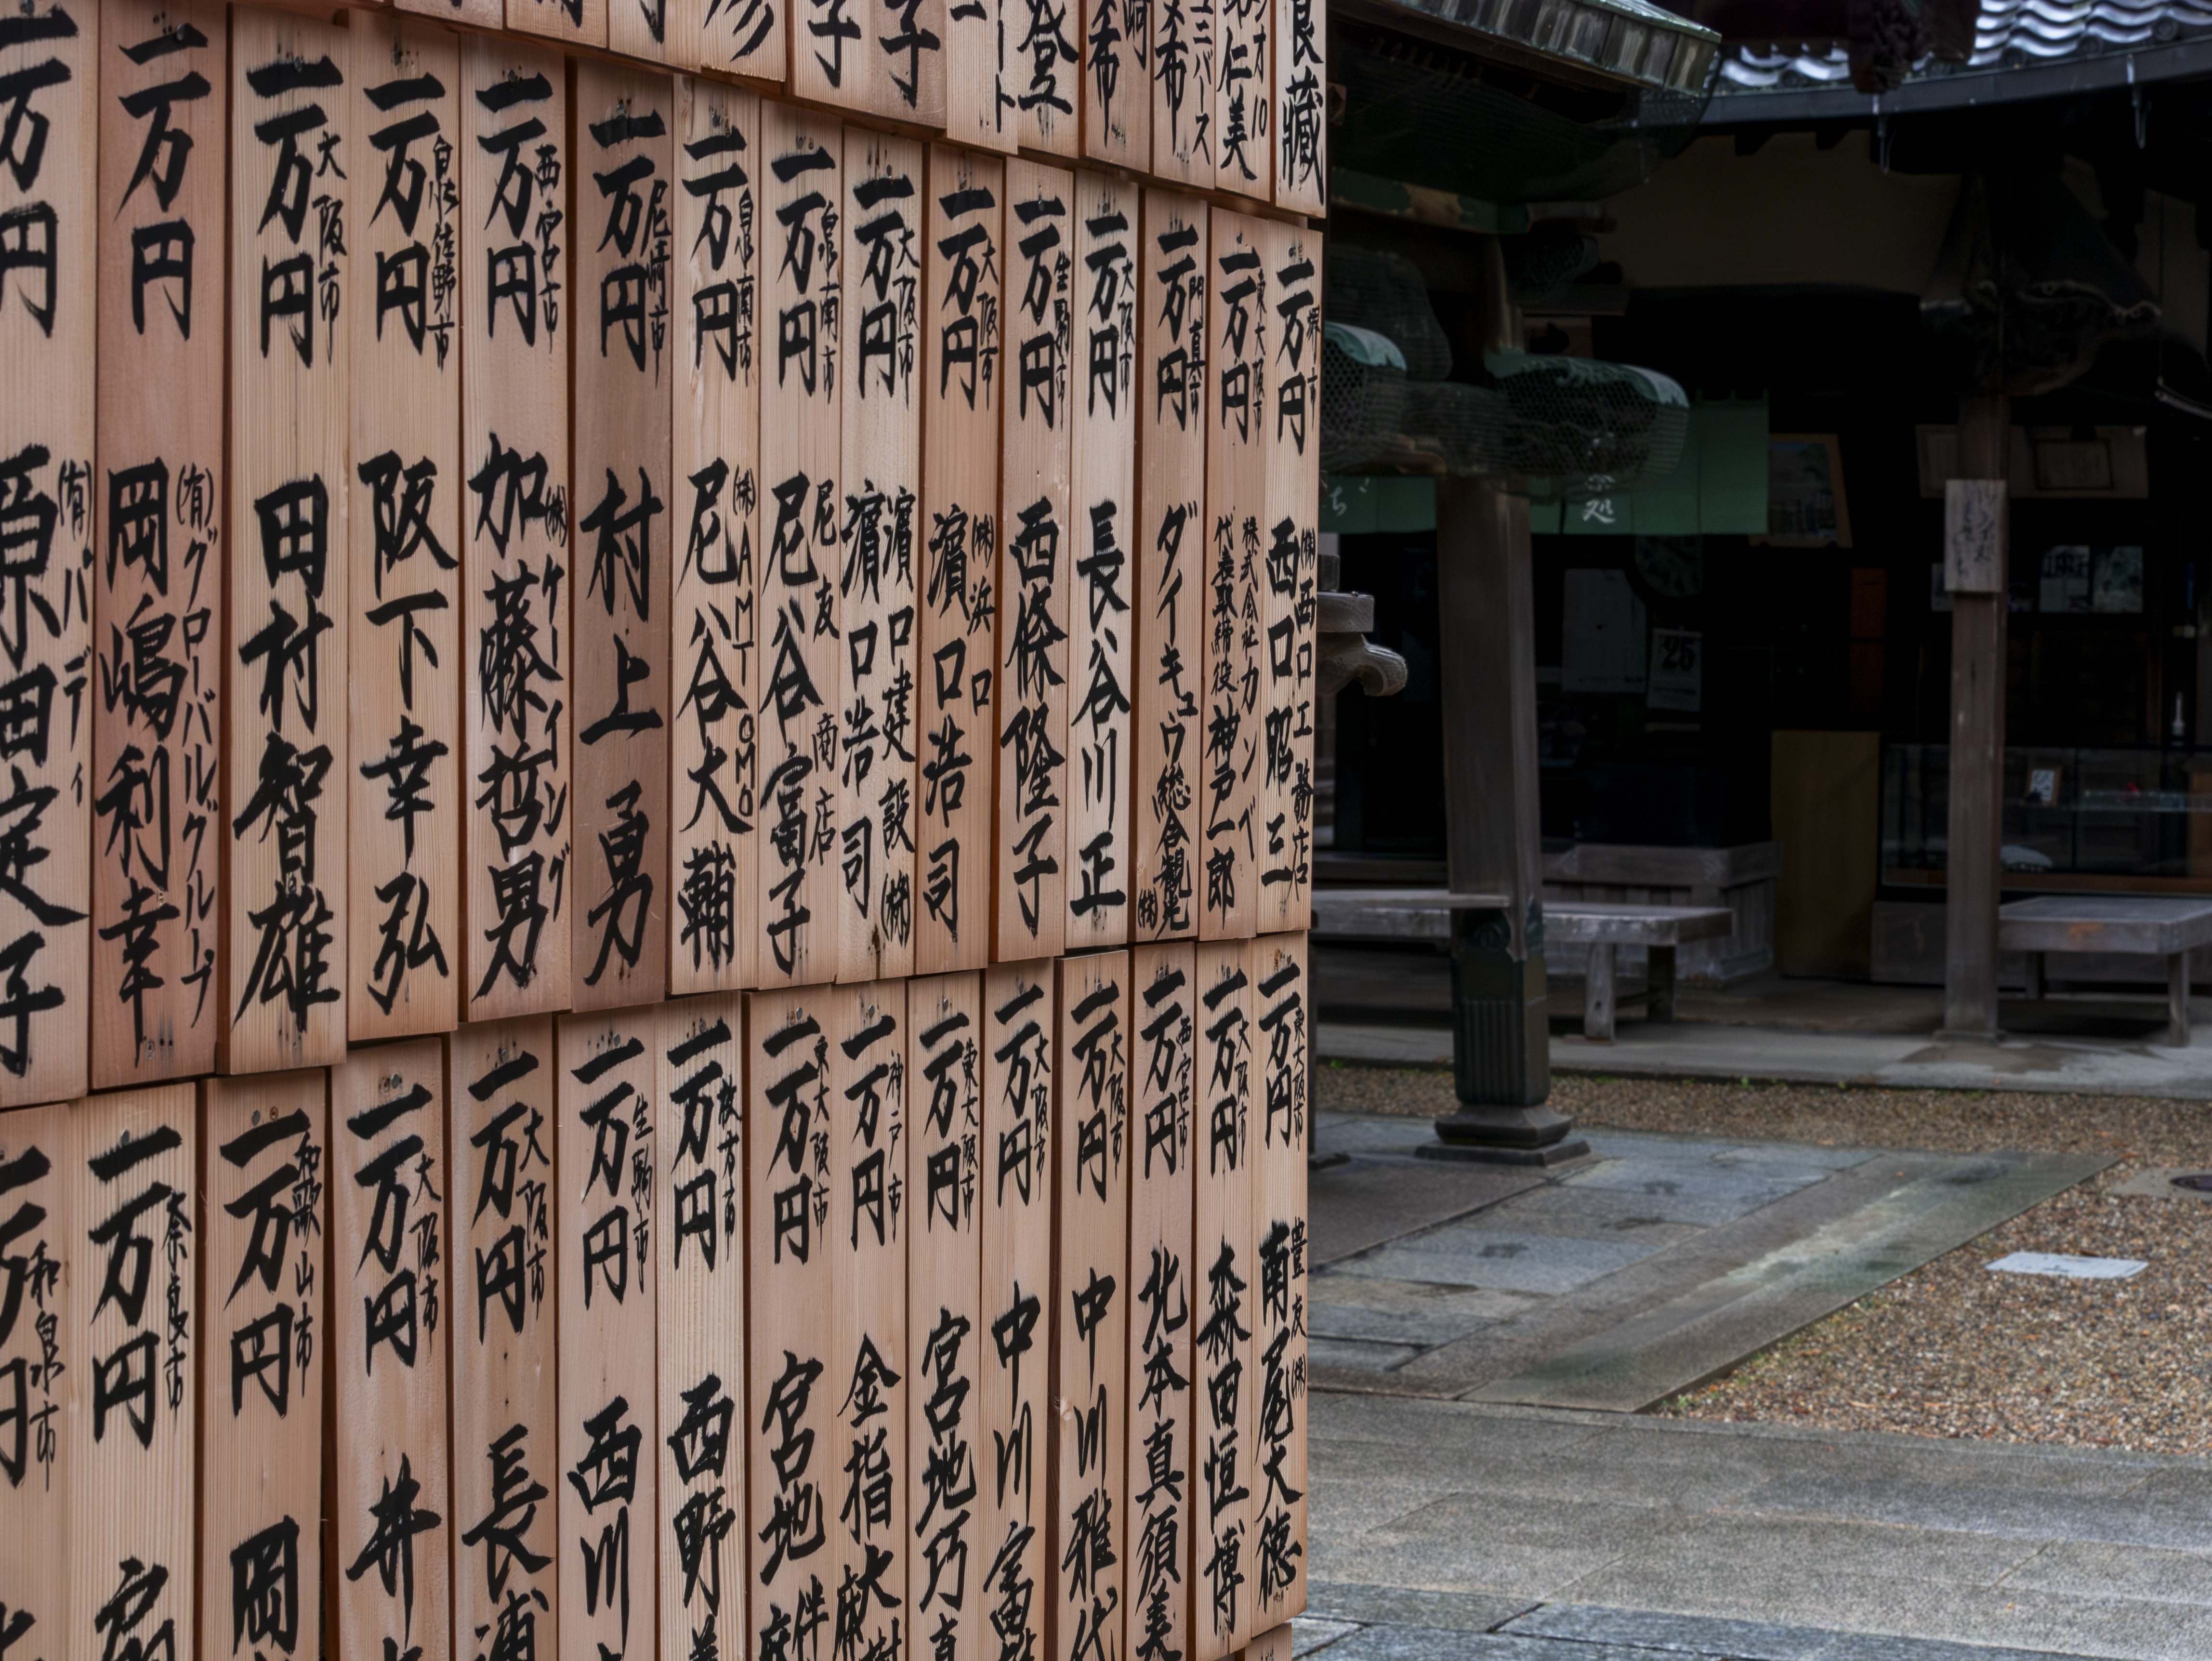 良藏
仁美
10
ユニバース
希
登
ート
子
子
堺市
一万円
(株)西口工務店
西口昭三
東大阪市
一万円
株式会社カンベ
代表取締役神戸一郎
門真市
一万円
ダイキュウ総合観光(株)
大阪市
一万円
長谷川正
生駒市
一万円
西條隆子
大阪市
一万円
(株)浜口
濵口浩司
大阪市
一万円
濵口建設(株)
濵口浩司
泉南市
一万円
尼友商店
尼谷富子
泉南市
一万円
(株)AMT OMO
尼谷大輔
尼崎市
一万円
村上勇
西宮市
一万円
(株)ケーイング
加藤哲男
泉佐野市
一万円
阪下幸弘
大阪市
一万円
田村智雄
一万円
(有)グローバルグループ
岡嶋利幸
一万円
(有)バディ
原田定子
東大阪市
一万円
豊友(株)
南尾大徳
大阪市
一万円
森田恒博
西宮市
一万円
北本真須美
大阪市
一万円
中川雅代
大阪市
一万円
中川富
東大阪市
一万円
宮地巧真
神戸市
一万円
金指大
東大阪市
一万円
宮地
枚方市
一万円
西野
生駒市
一万円
西川
大阪市
一万円
長浦
大阪市
一万円
井
和歌山市
一万円
岡
奈良市
一万円
和泉市
一万円
処
25